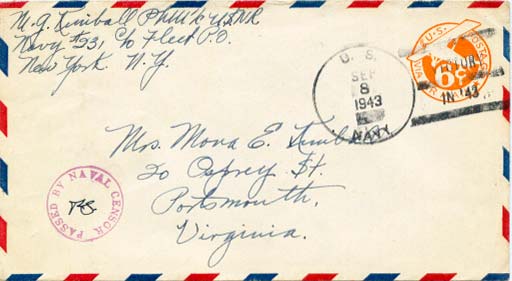 M. G. Kimball PhM1c USNR
Navy #531, c/o Fleet P.O.
New York. N. Y.
U. S.
SEP
8
1943
NAVY
U.S. POSTAGE
6¢
VICTORY
IN '43
Mrs. Mona E. Kimball
20 Osprey St.
Portsmouth,
Virginia.
PASSED BY NAVAL CENSOR